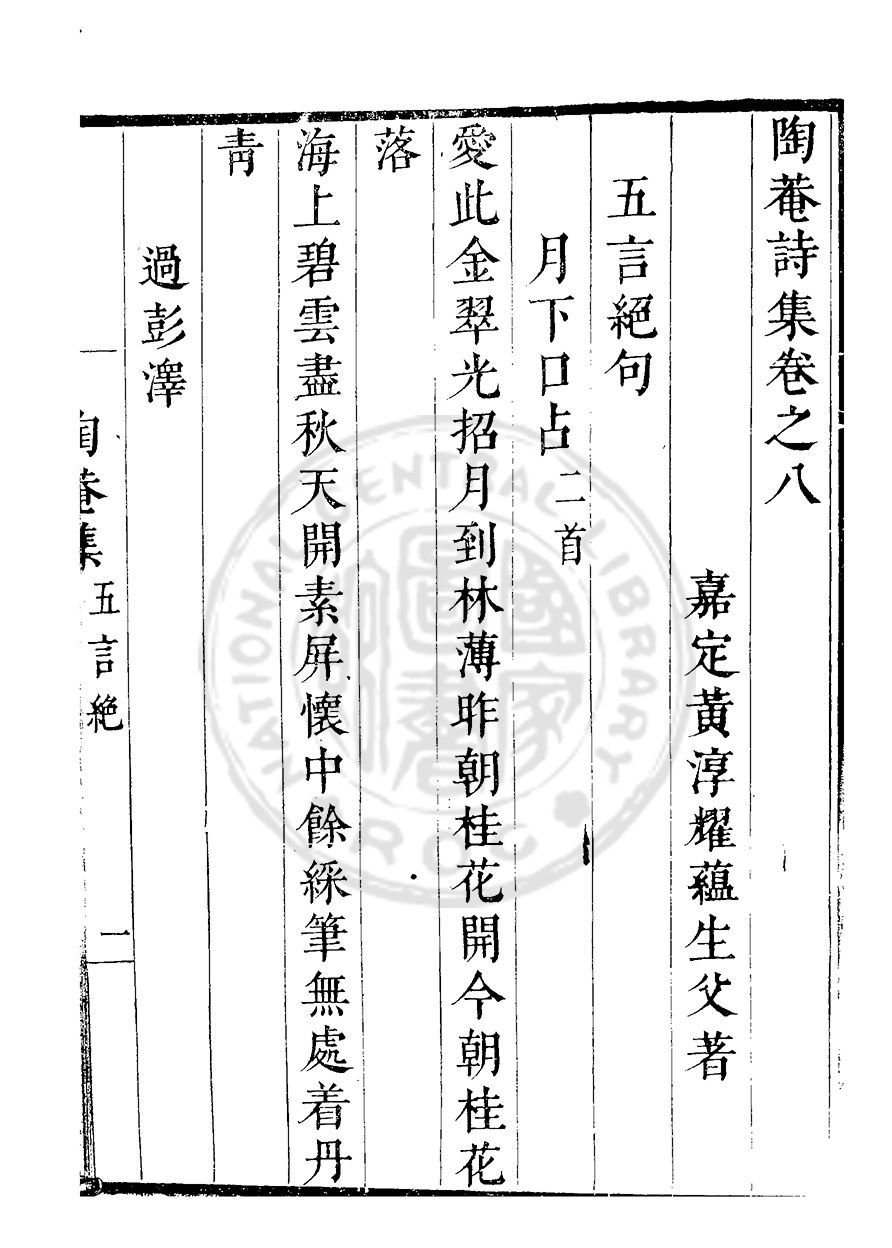 陶菴詩集卷之八
嘉定黃淳耀蘊生父著
五言絕句
月下口占 二首
愛此金翠光招月到林薄昨朝桂花開今朝桂花
落
海上碧雲盡秋天開素屏懷中餘綵筆無處着丹
青
過彭澤
陶菴集 五言絶 一
NATIONAL CENTRAL LIBRARY
R.O.C.
國家圖書館